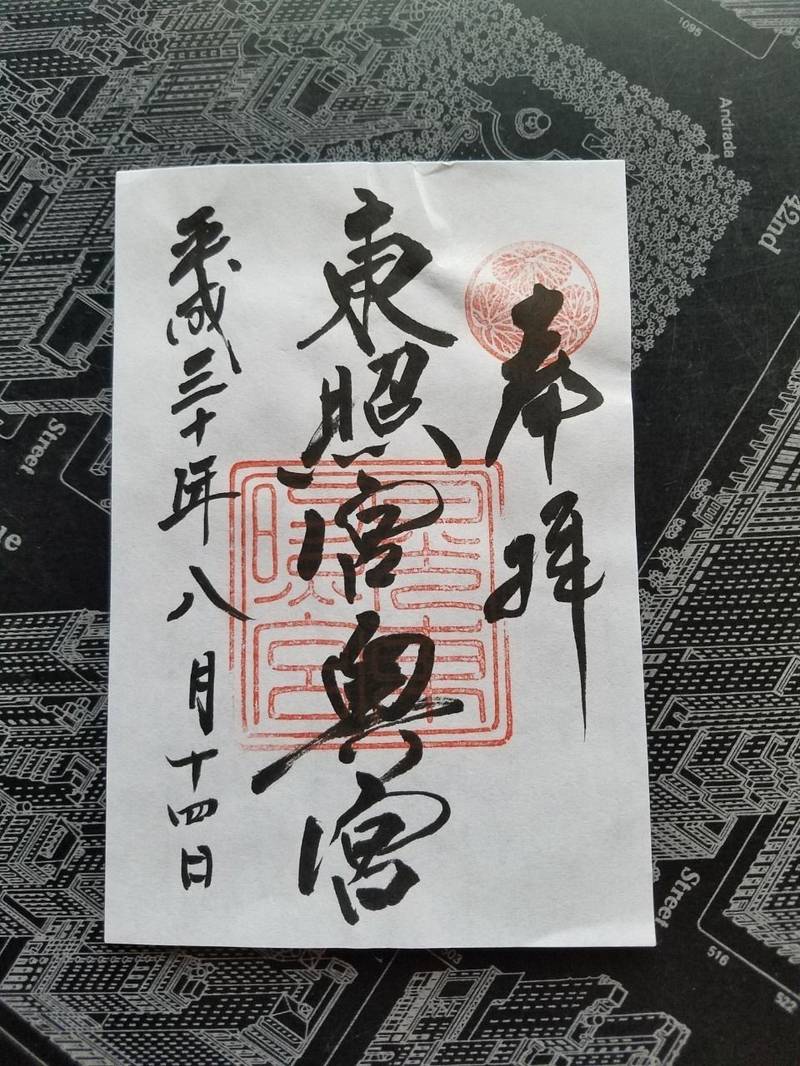 奉拝
東照宮奥宮
平成三十年八月十四日
Andrada
42nd
1095
Street
Street
516
522